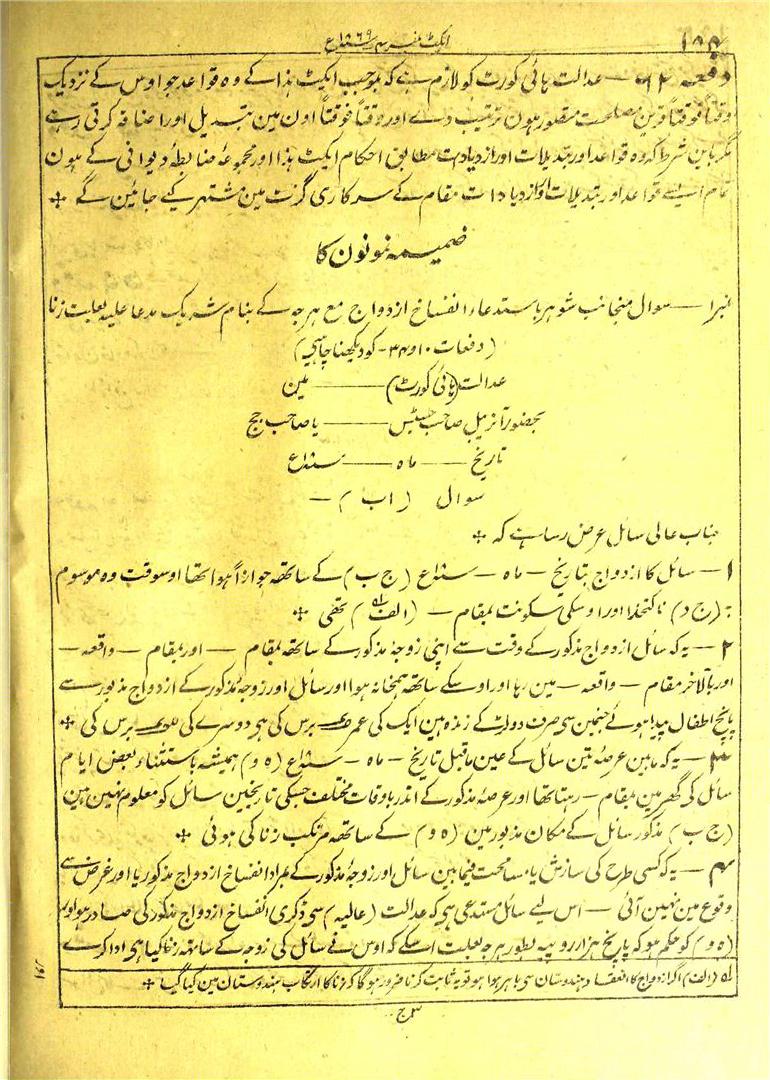 ایکٹ نمبر ۴ سنہ ۱۸۶۹ع
دفعہ ۶۲ — عدالت ہائی کورٹ کو لازم ہے کہ بموجب ایکٹ ہذا کے وہ قواعد جو اوس کے نزدیک
وقتاً فوقتاً قرین مصلحت متصور ہون ترتیب دے اور وقتاً فوقتاً اون مین تبدیل اور اضافہ کرتی رہے
مگر باین شرط کہ وہ قواعد اور تبدیلات اور ازدیادات مطابق احکام ایکٹ ہذا اور مجموعہٴ ضابطہٴ دیوانی کے ہون
تمام ایسے قواعد اور تبدیلات اور ازدیادات مقام کے سرکاری گزٹ مین مشتہر کیے جائین گے ✤
ضمیمہ نمونون کا
نمبر ۱ — سوال منجانب شوہر باستدعاء انفساخ ازدواج مع ہرجہ کے بنام شریک مدعا علیہ بعلت زنا
(دفعات ۱۰ و ۳۴ - کو دیکھنا چاہیی)
عدالت (ہائی کورٹ) ——— مین
بحضور آنریبل صاحب جسٹس ——— یا صاحب جج
تاریخ —— ماہ —— سنہ ۱۸ع
سوال (ا ب) —
جناب عالی سائل عرض رسا ہے کہ ✤
۱ — سائل کا ازدواج بتاریخ — ماہ — سنہ ۱۸ع (ج ب) کے ساتھہ جوازاً ہوا تھا اوسوقت وہ موسوم
بہ (ج د) ناکتخدا اور اوسکی سکونت بمقام — (الف) ؎۱ تھی ✤
۲ — یہ کہ سائل ازدواج مذکور کے وقت سے اپنی زوجہٴ مذکور کے ساتھہ بمقام — اور بمقام — واقعہ —
اور بالآخر مقام — واقعہ — مین رہا اور اوسکے ساتھہ ہمخانہ ہوا اور سائل اور زوجہٴ مذکور کے ازدواج مذبور سے
پانچ اطفال پیدا ہوئے جنمین سی صرف دو لڑکے زندہ مین ایک کی عمر برس کی ہی دوسرے کی برس کی ✤
۳ — یہ کہ مابین عرصہٴ تین سائل کے عین ماقبل تاریخ — ماہ — سنہ ۱۸ع (ہ و) ہمیشہ باستثناء بعض ایام
سائل کی گھر مین بمقام — رہتا تھا اور عرصہٴ مذکور کے اندر باوقات مختلف جسکی تاریخین سائل کو معلوم نہین ہین
(ج ب) مذکور سائل کے مکان مذبور مین (ہ و) کے ساتھہ مرتکب زنا کی ہوئی ✤
۴ — یہ کہ کسی طرح کی سازش یا مسامحت فیمابین سائل اور زوجہٴ مذکور کے بمراد انفساخ ازدواج مذکور یا اور غرض سے
وقوع مین نہین آئی — اس لیے سائل مستدعی ہی کہ عدالت (عالیہ) سی ڈکری انفساخ ازدواج مذکور کی صادر ہو اور
(ہ و) کو حکم ہو کہ پانچ ہزار روپیہ بطور ہرجہ بعلت اسکے کہ اوس نے سائل کی زوجہ کے ساتھہ زنا کیا ہی ادا کرے
اور
؎۱ (الف) اگر ازدواج کا انعقاد ہندوستان سی باہر ہوا ہو تو یہ ثابت کرنا ضرور ہو گا کہ زنا کا ارتکاب ہندوستان مین کیا گیا ✤
۳ ج